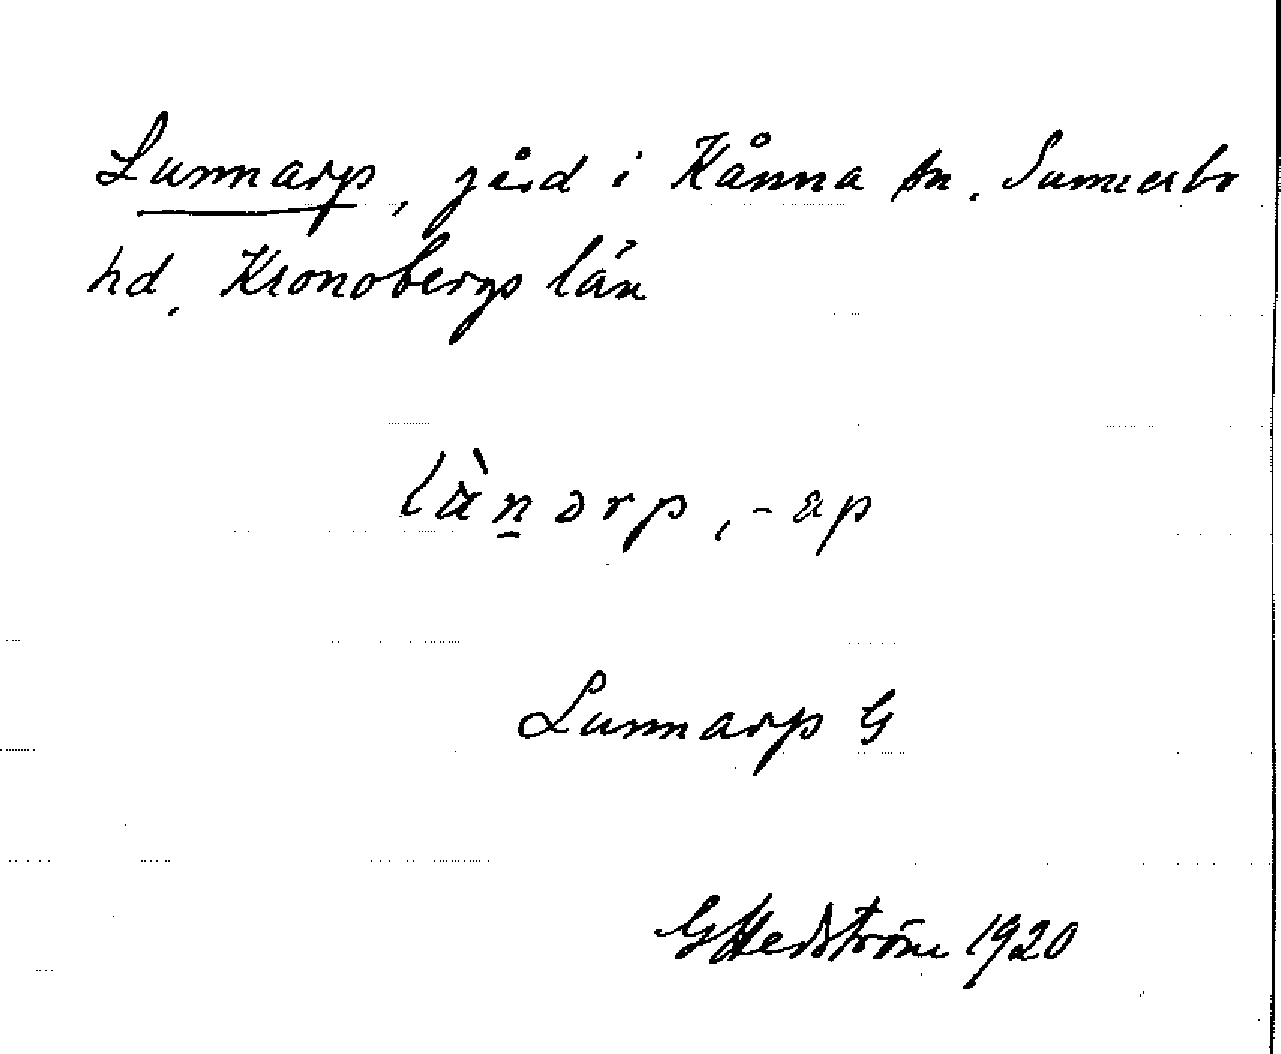 Lunnarp, gård i Kånna sn. Sunnerbo
hd. Kronobergs län
làn̠arp, -ap
Lunnarp G
G Hedström 1920